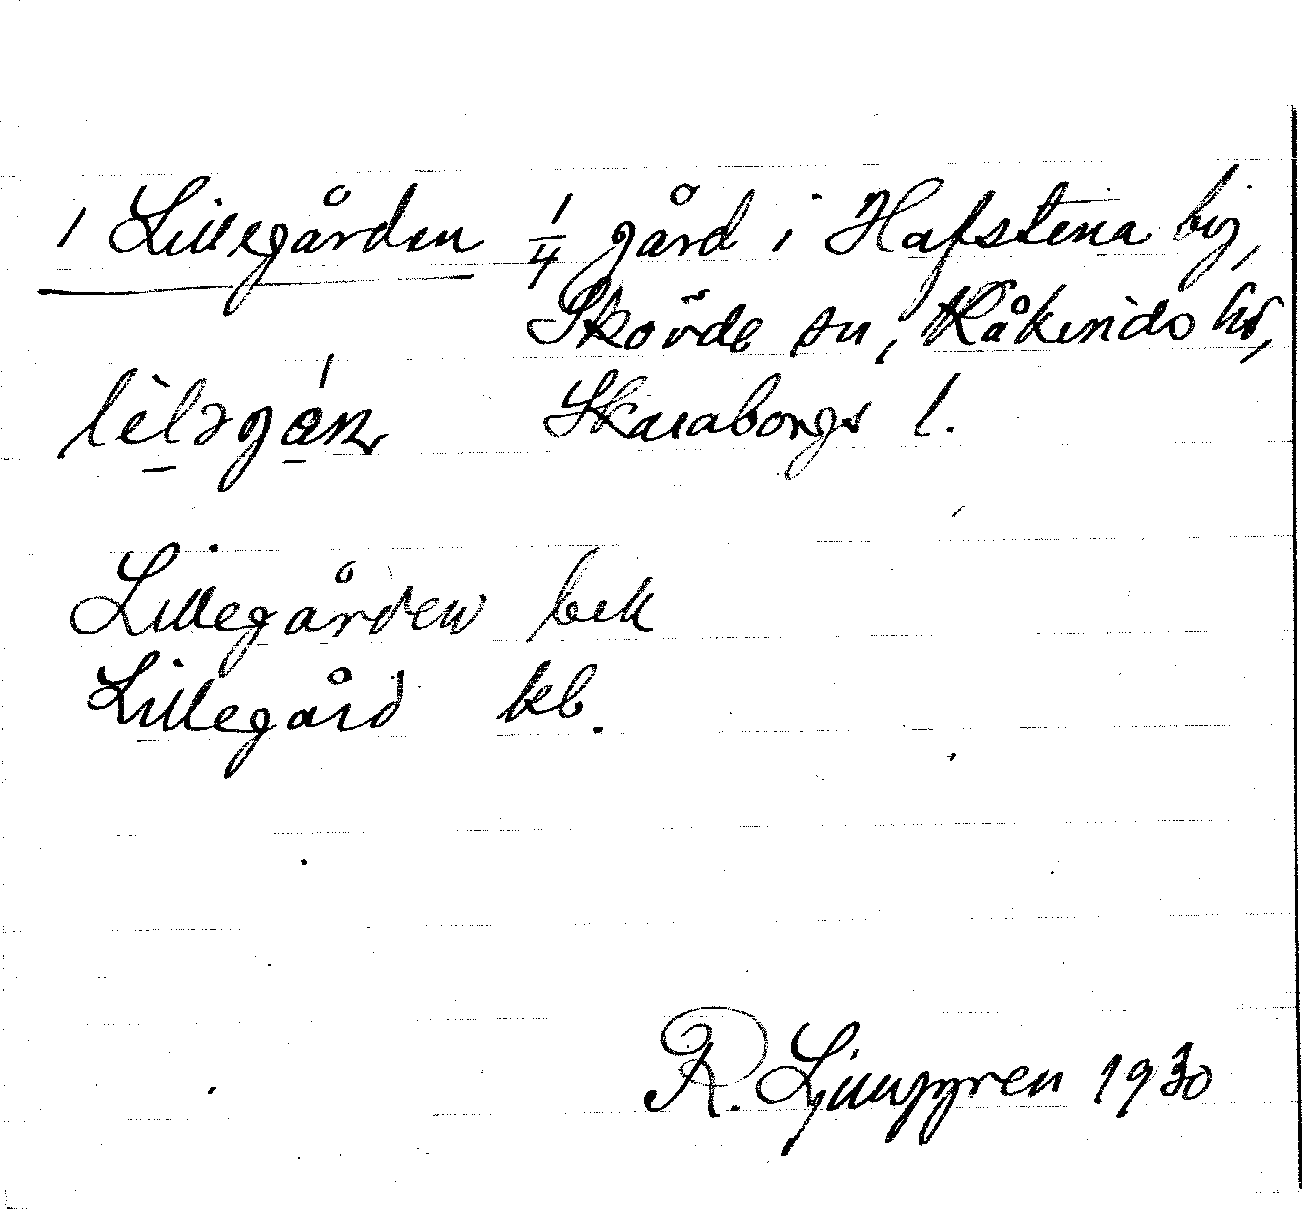 1 Lillegården 1/4 gård i Hafstena by,
Skövde sn, Kåkinds hd,
Skaraborgs l.
Lillegården bek
Lillegård kb.
R. Ljunggren 1930